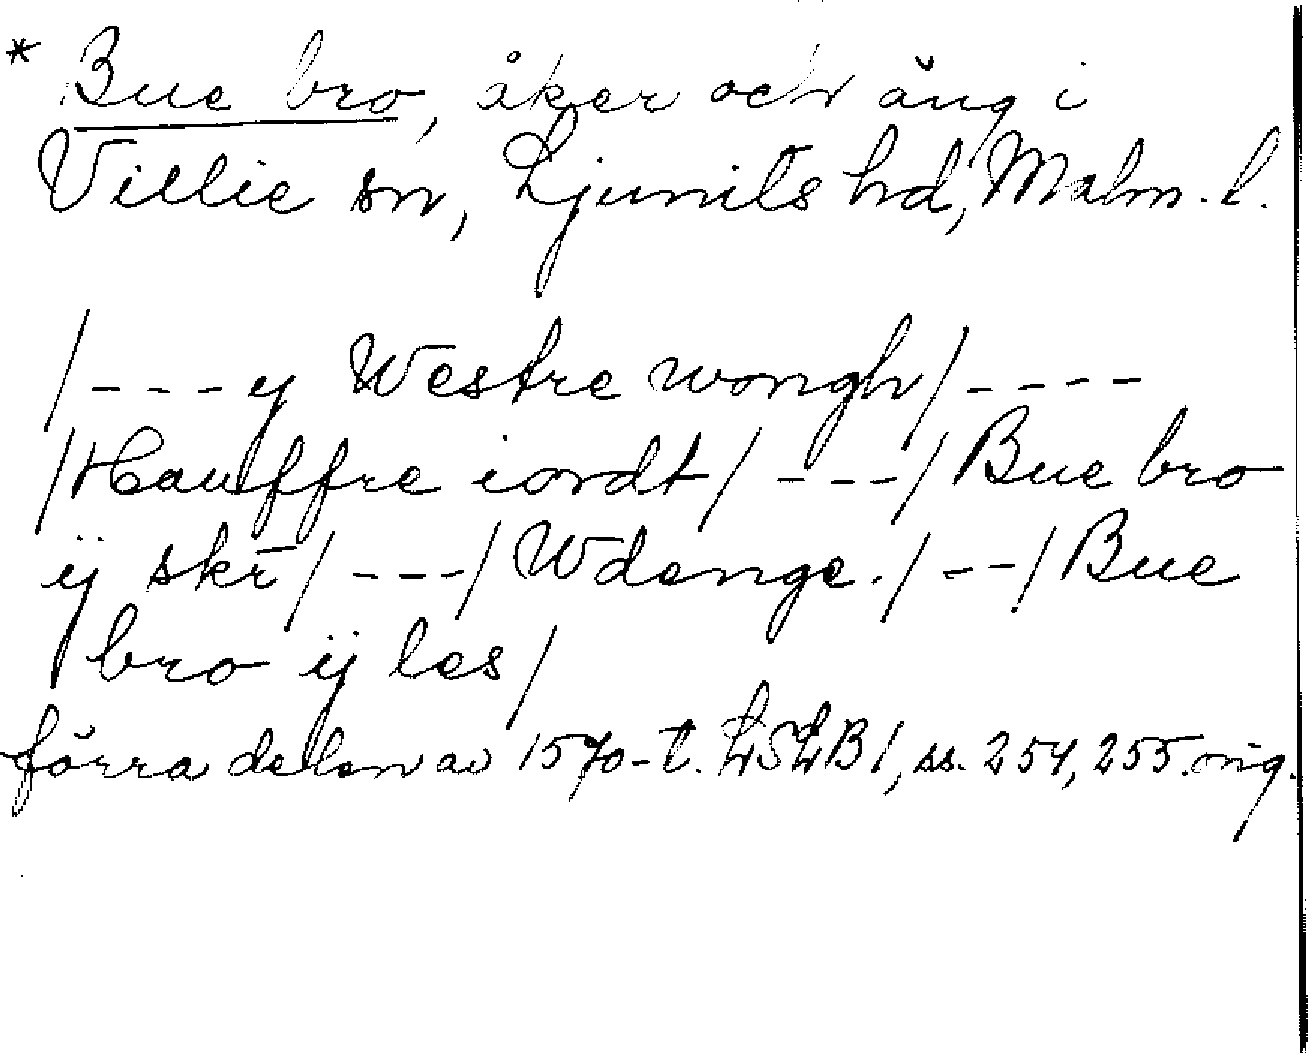 * Bue bro, åker och äng i
Villie sn, Ljunits hd, Malm. l.
/---y Westre wongh/----
/Hauffre iordt/ ---/Bue bro
ij skr̄/ ---/Wdenge./ --/Bue
bro ij les/
förra delen av 1570-t. LSLB 1, ss. 254, 255. orig.